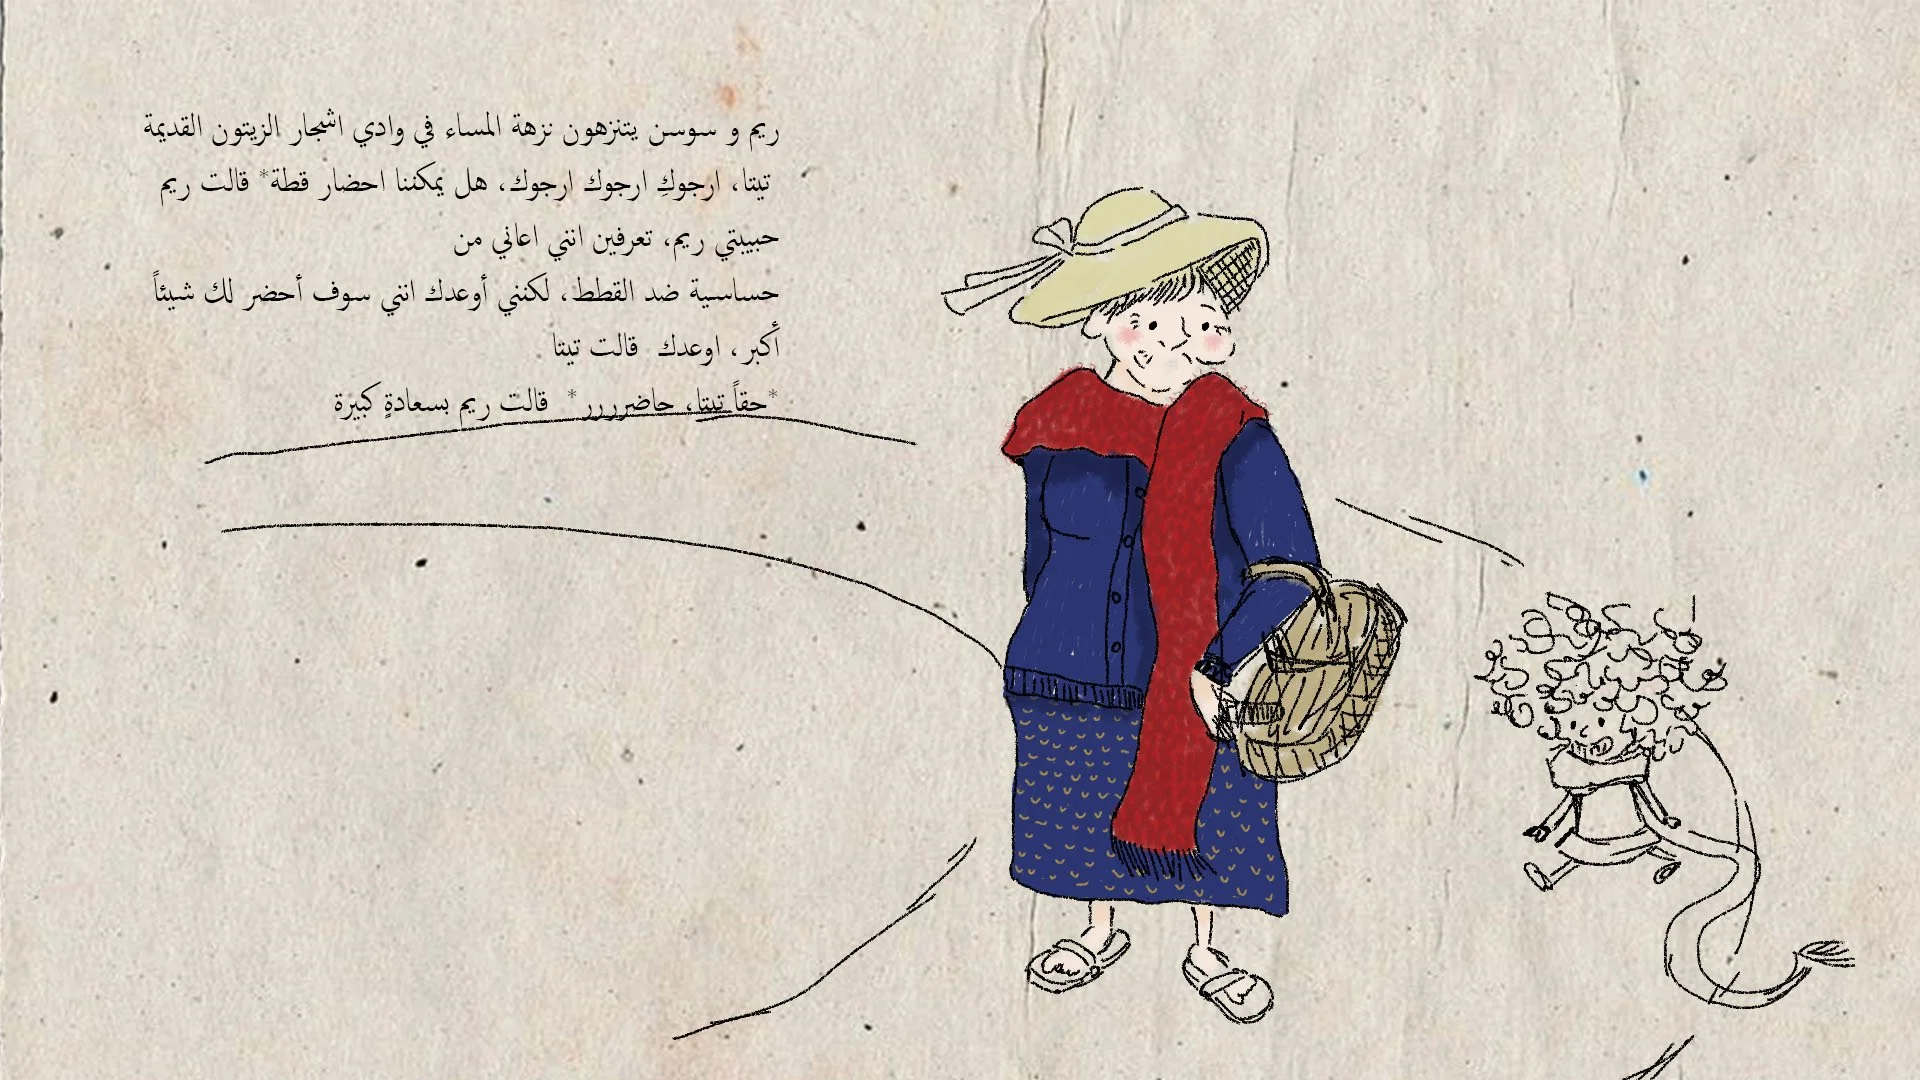 ريم و سوسن يتنزهون نزهة المساء في وادي اشجار الزيتون القديمة
تيتا، ارجوكِ ارجوك ارجوك، هل يمكننا احضار قطة* قالت ريم
حبيبتي ريم، تعرفين انني اعاني من
حساسية ضد القطط، لكنني أوعدك انني سوف أحضر لك شيئاً
أكبر، اوعدك قالت تيتا
*حقاً تيتا، حاضرررر* قالت ريم بسعادةٍ كبيرة